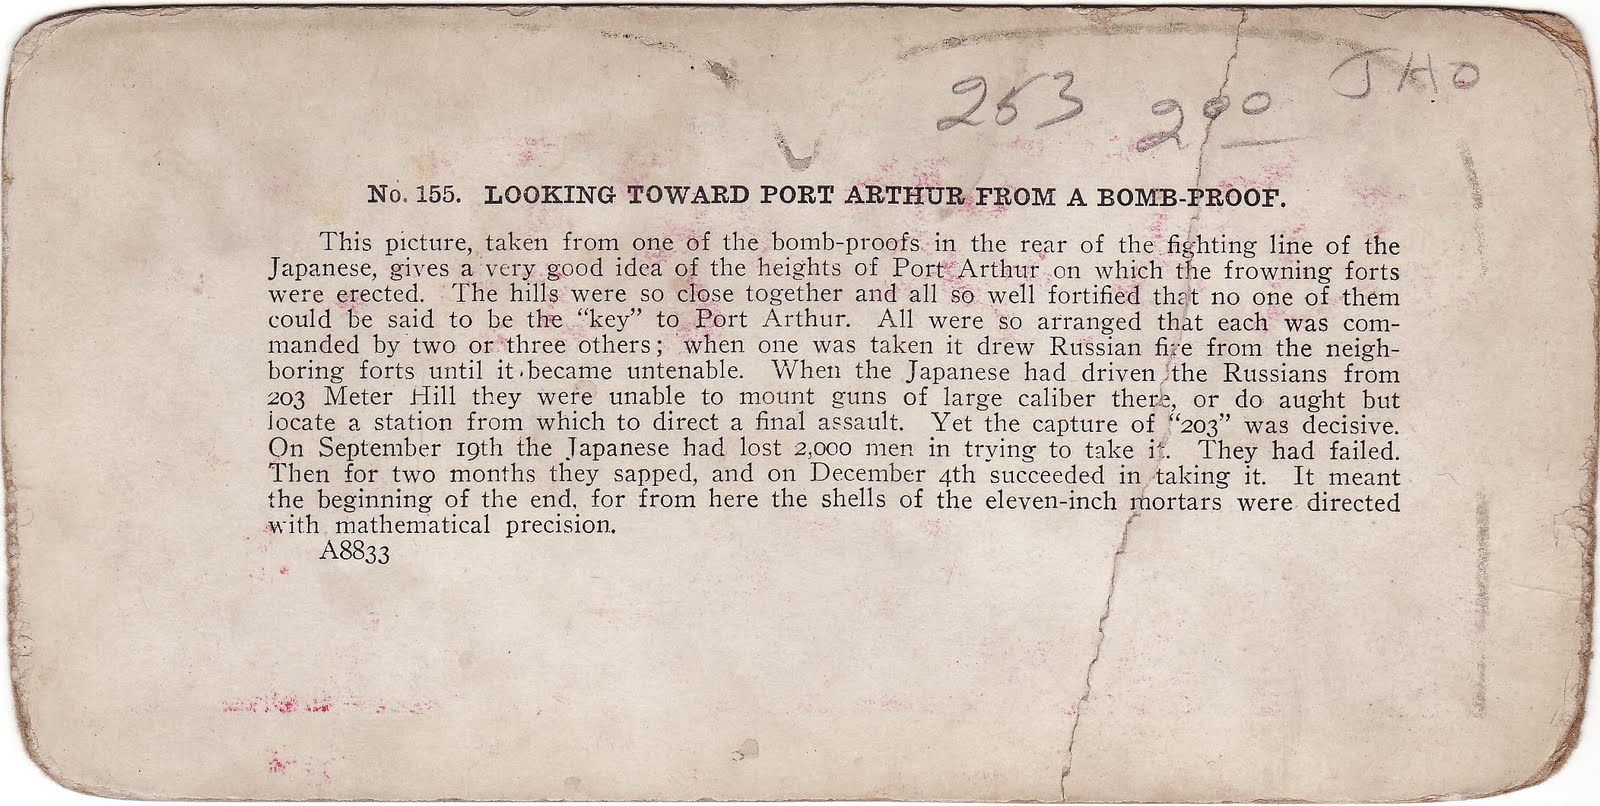 253 2 00 JHO
No. 155. LOOKING TOWARD PORT ARTHUR FROM A BOMB-PROOF.
This picture, taken from one of the bomb-proofs in the rear of the fighting line of the
Japanese, gives a very good idea of the heights of Port Arthur on which the frowning forts
were erected. The hills were so close together and all so well fortified that no one of them
could be said to be the “key” to Port Arthur. All were so arranged that each was com-
manded by two or three others; when one was taken it drew Russian fire from the neigh-
boring forts until it became untenable. When the Japanese had driven the Russians from
203 Meter Hill they were unable to mount guns of large caliber there, or do aught but
locate a station from which to direct a final assault. Yet the capture of “203” was decisive.
On September 19th the Japanese had lost 2,000 men in trying to take it. They had failed.
Then for two months they sapped, and on December 4th succeeded in taking it. It meant
the beginning of the end, for from here the shells of the eleven-inch mortars were directed
with mathematical precision.
A8833